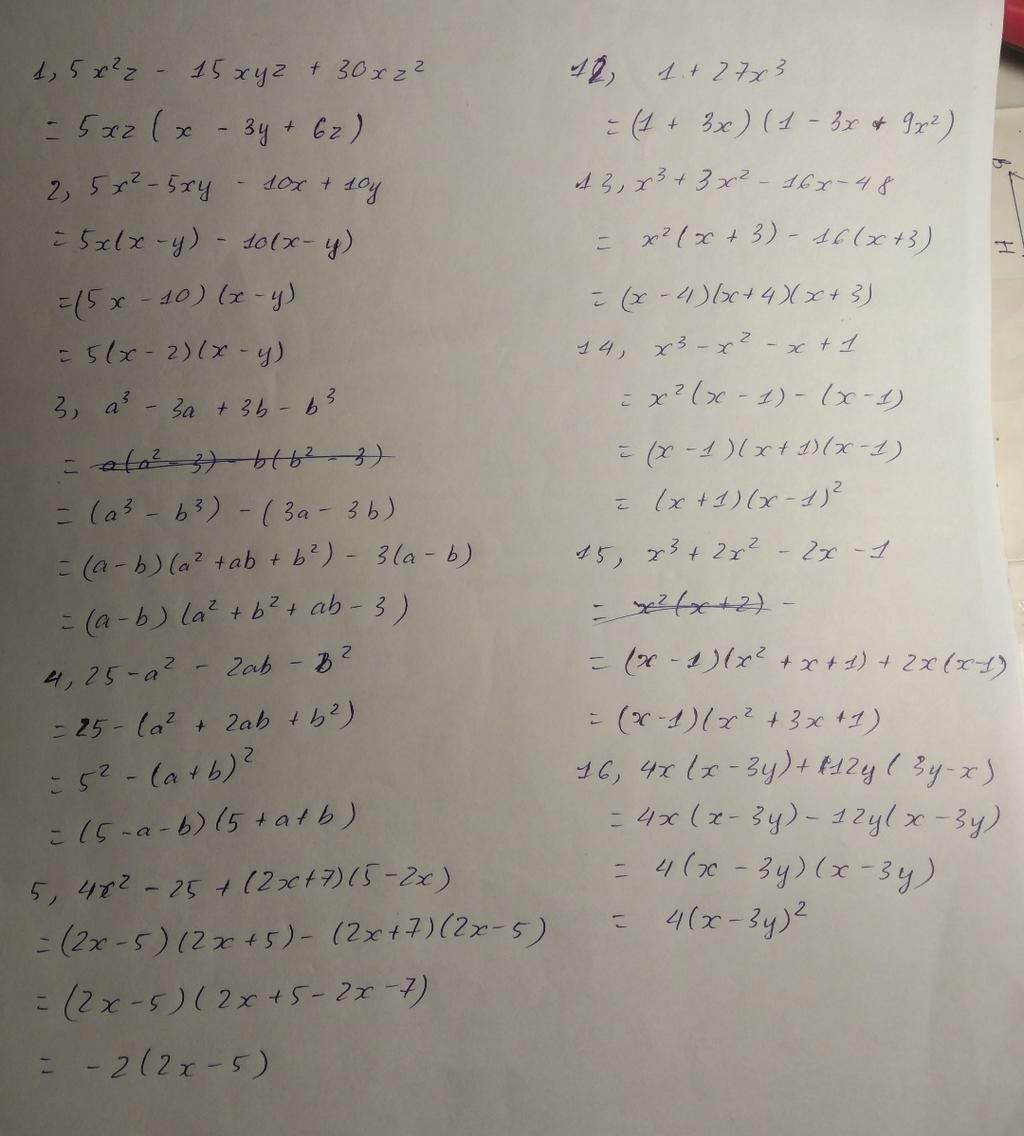 1, 5x²z - 15xyz + 30xz²
= 5xz(x - 3y + 6z)
2, 5x² - 5xy - 10x + 10y
= 5x(x - y) - 10(x - y)
= (5x - 10)(x - y)
= 5(x - 2)(x - y)
3, a³ - 3a + 3b - b³
= a(a² - 3) - b(b² - 3)
= (a³ - b³) - (3a - 3b)
= (a - b)(a² + ab + b²) - 3(a - b)
= (a - b)(a² + b² + ab - 3)
4, 25 - a² - 2ab - b²
= 25 - (a² + 2ab + b²)
= 5² - (a + b)²
= (5 - a - b)(5 + a + b)
5, 4x² - 25 + (2x + 7)(5 - 2x)
= (2x - 5)(2x + 5) - (2x + 7)(2x - 5)
= (2x - 5)(2x + 5 - 2x - 7)
= -2(2x - 5)
12, 1 + 27x³
= (1 + 3x)(1 - 3x + 9x²)
13, x³ + 3x² - 16x - 48
= x²(x + 3) - 16(x + 3)
= (x - 4)(x + 4)(x + 3)
14, x³ - x² - x + 1
= x²(x - 1) - (x - 1)
= (x - 1)(x + 1)(x - 1)
= (x + 1)(x - 1)²
15, x³ + 2x² - 2x - 1
= x²(x + 2) -
= (x - 1)(x² + x + 1) + 2x(x - 1)
= (x - 1)(x² + 3x + 1)
16, 4x(x - 3y) + 12y(3y - x)
= 4x(x - 3y) - 12y(x - 3y)
= 4(x - 3y)(x - 3y)
= 4(x - 3y)²
B
H